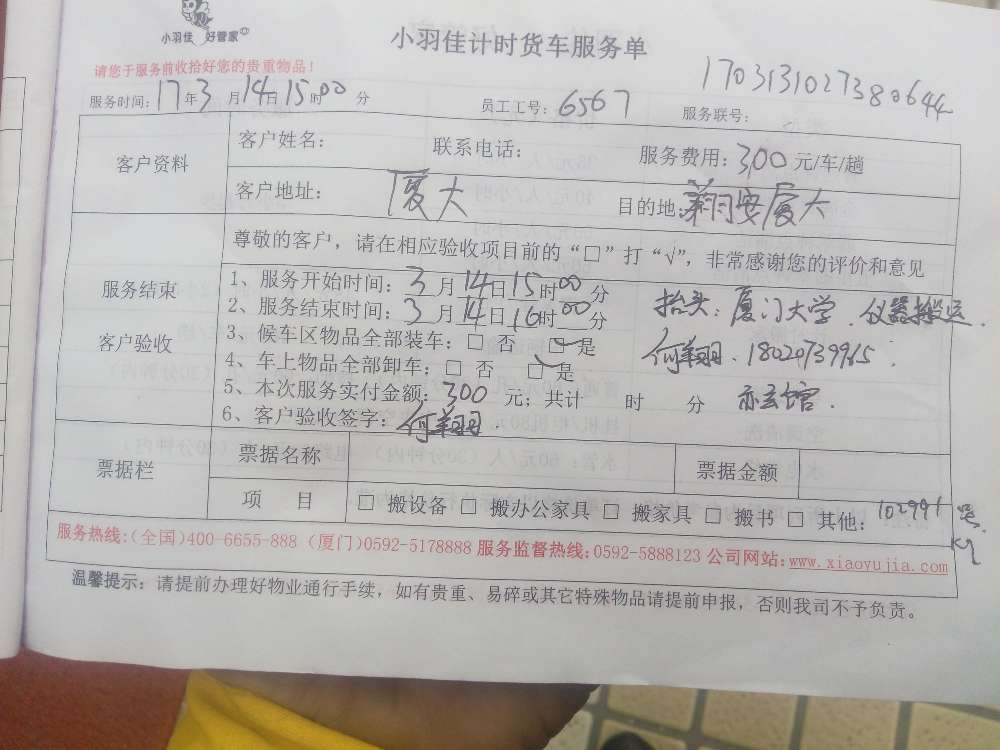 小羽佳 好管家
小羽佳计时货车服务单
请您于服务前收拾好您的贵重物品！
服务时间：17年3月14日15时00分 员工工号：6567 服务联号：1703131027380644
客户资料
客户姓名： 联系电话： 服务费用：300元/车/趟
客户地址：厦大 目的地：翔安厦大
尊敬的客户，请在相应验收项目前的“□”打“√”，非常感谢您的评价和意见
服务结束
客户验收
1、服务开始时间：3月14日15时00分
2、服务结束时间：3月14日16时00分
3、候车区物品全部装车：□ 否 ☑是
4、车上物品全部卸车：□ 否 ☑是
5、本次服务实付金额：300元；共计 时 分
6、客户验收签字：何翔
抬头：厦门大学．仪器搬运．
何翔．18020739965
亦玄馆．
票据栏
票据名称 票据金额
项 目 □ 搬设备 □ 搬办公家具 □ 搬家具 □ 搬书 □ 其他：102991
服务热线:（全国）400-6655-888（厦门）0592-5178888 服务监督热线：0592-5888123 公司网站：www.xiaoyujia.com
温馨提示：请提前办理好物业通行手续，如有贵重、易碎或其它特殊物品请提前申报，否则我司不予负责。